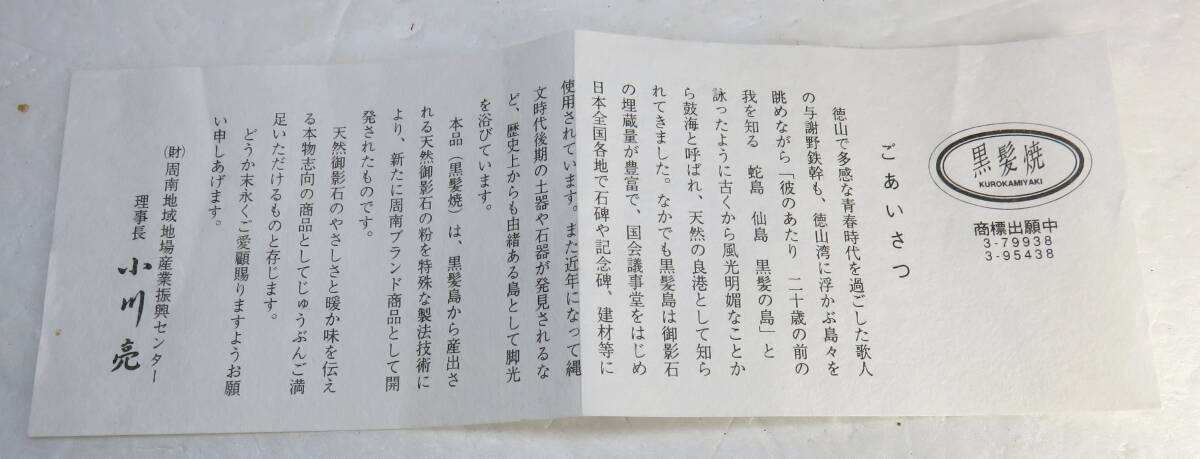 黒髪焼
KUROKAMIYAKI
商標出願中
3-79938
3-95438
ごあいさつ
徳山で多感な青春時代を過ごした歌人
の与謝野鉄幹も、徳山湾に浮かぶ島々を
眺めながら「彼のあたり　二十歳の前の
我を知る　蛇島　仙島　黒髪の島」と
詠ったように古くから風光明媚なことか
ら鼓海と呼ばれ、天然の良港として知ら
れてきました。なかでも黒髪島は御影石
の埋蔵量が豊富で、国会議事堂をはじめ
日本全国各地で石碑や記念碑、建材等に
使用されています。また近年になって縄
文時代後期の土器や石器が発見されるな
ど、歴史上からも由緒ある島として脚光
を浴びています。
本品（黒髪焼）は、黒髪島から産出さ
れる天然御影石の粉を特殊な製法技術に
より、新たに周南ブランド商品として開
発されたものです。
天然御影石のやさしさと暖か味を伝え
る本物志向の商品としてじゅうぶんご満
足いただけるものと存じます。
どうか末永くご愛顧賜りますようお願
い申しあげます。
（財）周南地域地場産業振興センター
理事長　小川亮